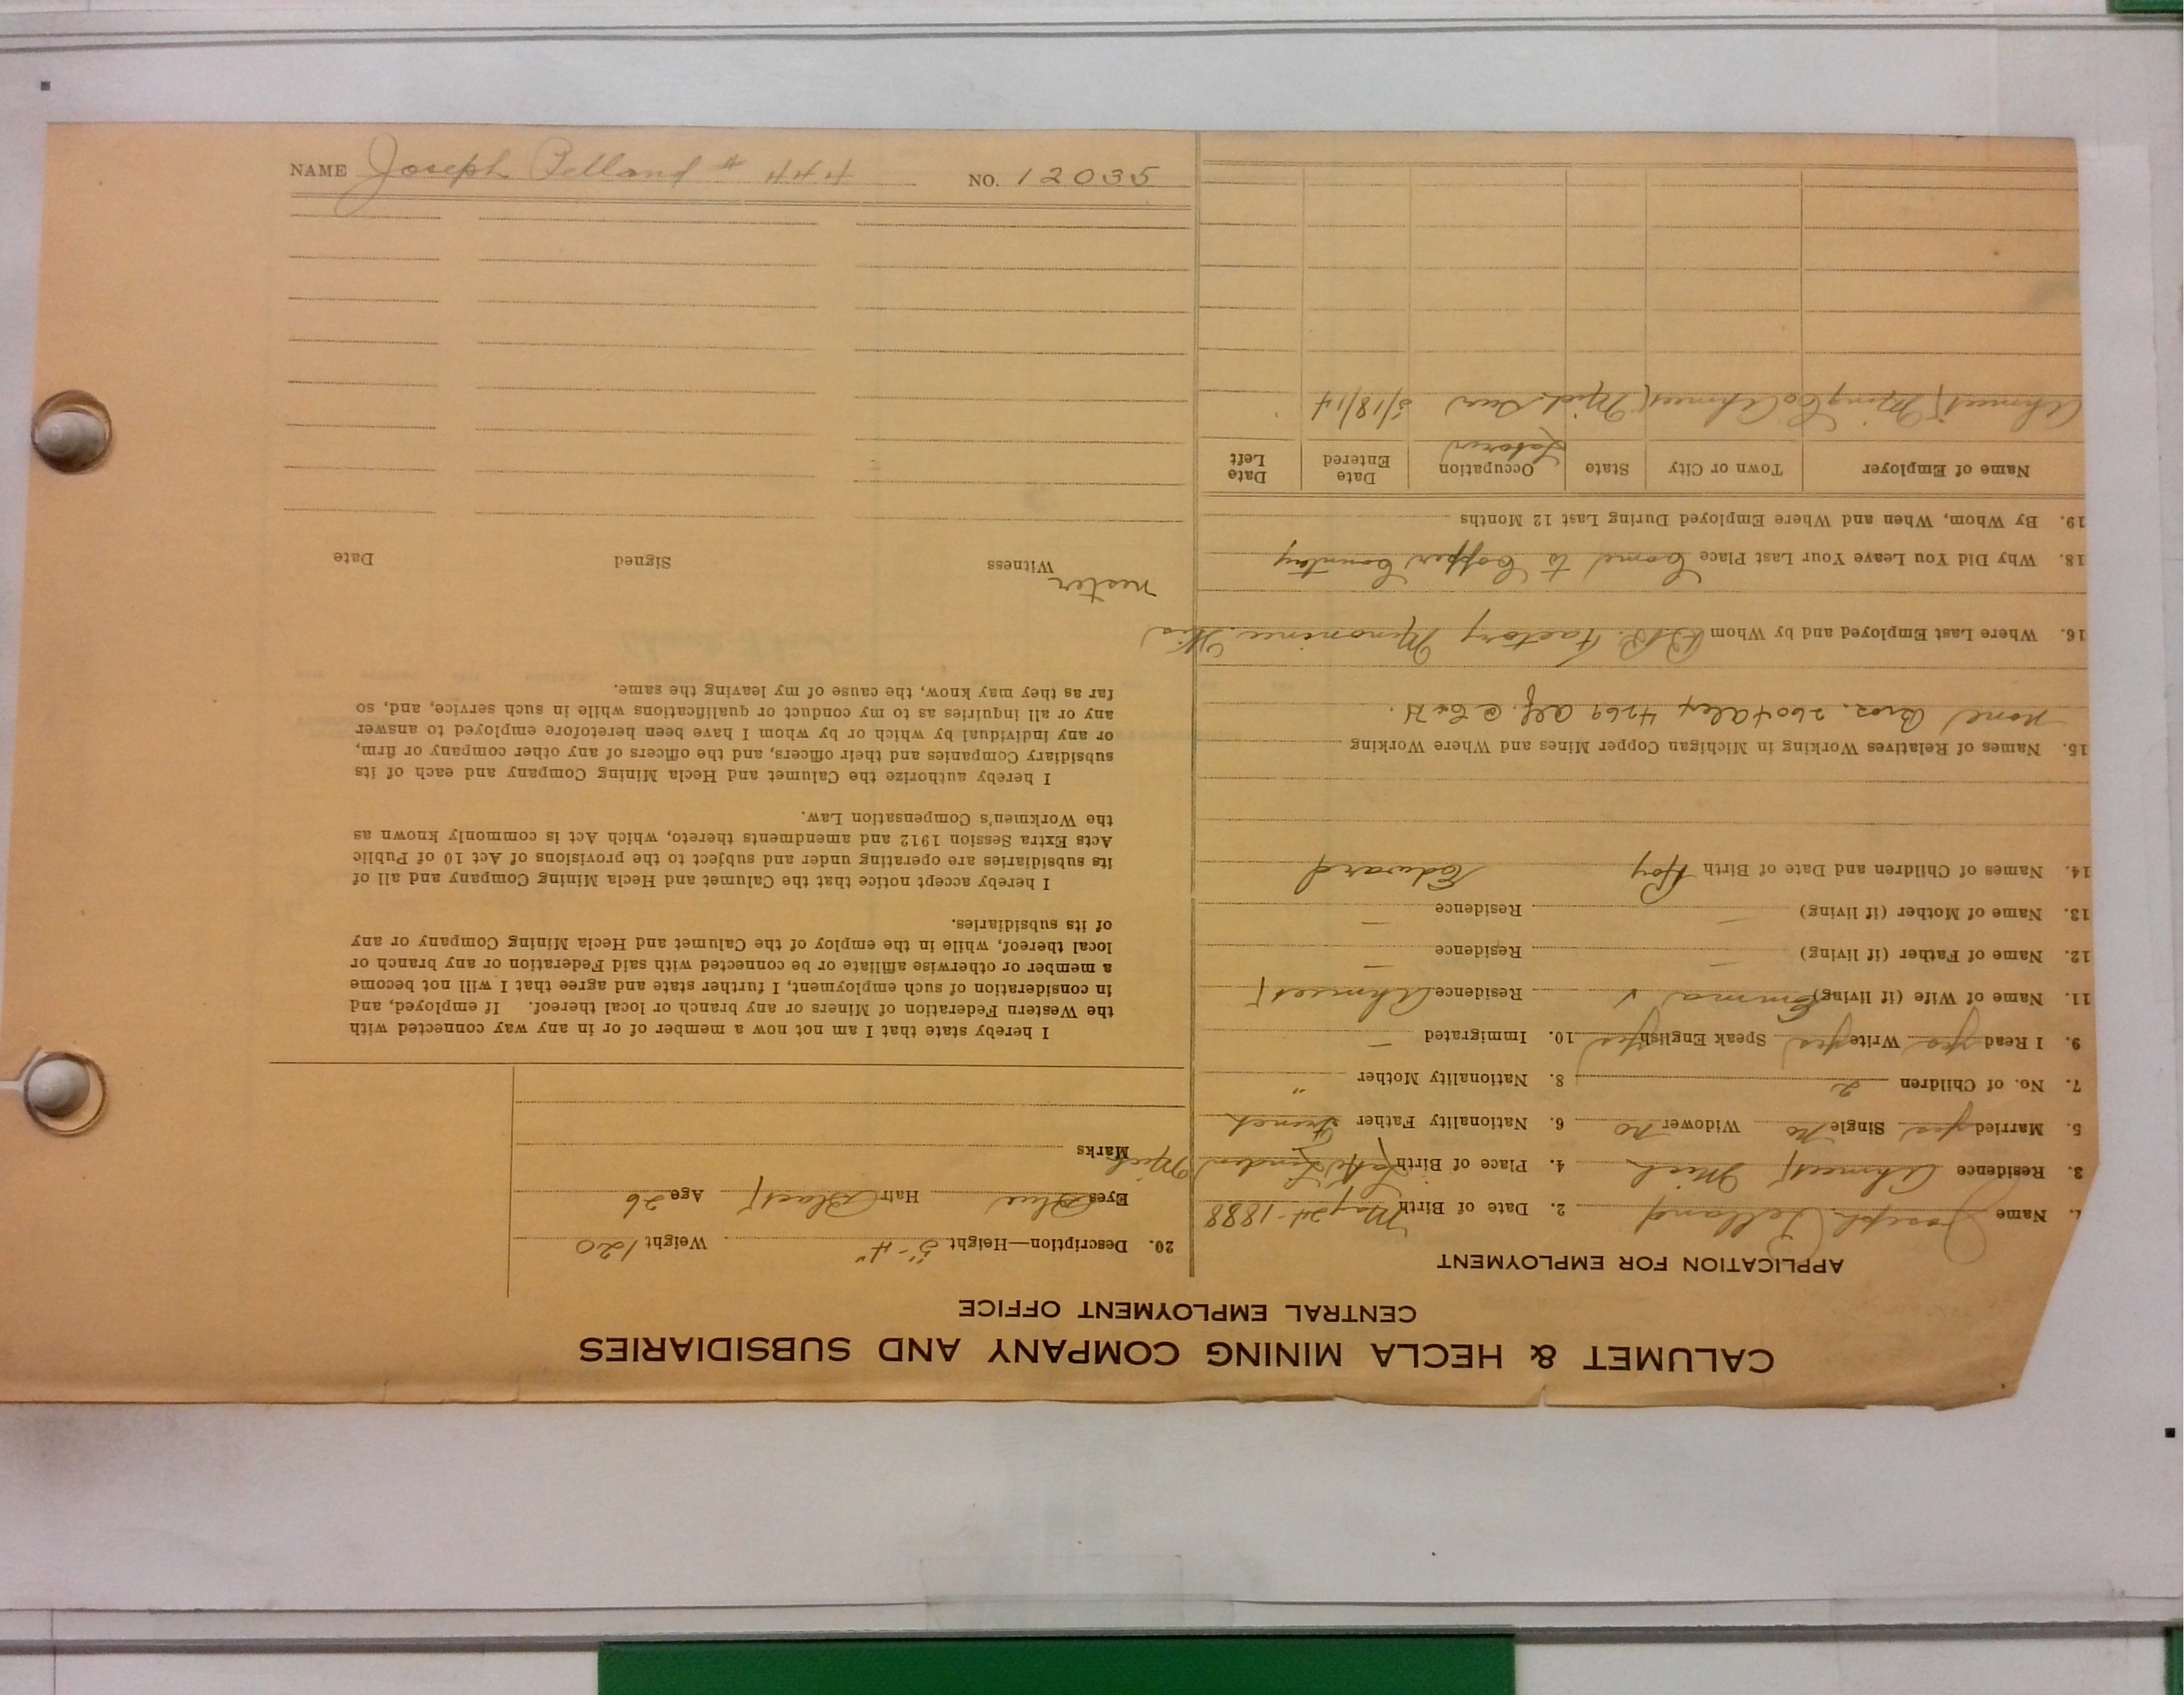 CALUMET & HECLA MINING COMPANY AND SUBSIDIARIES
CENTRAL EMPLOYMENT OFFICE
APPLICATION FOR EMPLOYMENT
1. Name Joseph Pelland 2. Date of Birth May 24-1888
3. Residence Ahmeek Mich 4. Place of Birth Lake Linden Mich
5. Married yes Single No Widower no 6. Nationality Father French
7. No. of Children 2 8. Nationality Mother "
9. I Read yes Write yes Speak English yes 10. Immigrated —
11. Name of Wife (if living) Emma Residence Ahmeek
12. Name of Father (if living) — Residence —
13. Name of Mother (if living) — Residence —
14. Names of Children and Date of Birth Roy Edward
15. Names of Relatives Working in Michigan Copper Mines and Where Working
none Bros. 2604 Alex 4269 Alf. @ C&H.
16. Where Last Employed and by Whom Factory Menominee Wis
18. Why Did You Leave Your Last Place Come to Copper Country
19. By Whom, When and Where Employed During Last 12 Months
Name of Employer Town or City State Occupation Date Entered Date Left
Laborer
Ahmeek Mining Co Ahmeek Mich 5/18/14
20. Description—Height 5-4" Weight 120
Eyes Blue Hair Black Age 26
Marks
I hereby state that I am not now a member of or in any way connected with
the Western Federation of Miners or any branch or local thereof. If employed, and
in consideration of such employment, I further state and agree that I will not become
a member or otherwise affiliate or be connected with said Federation or any branch or
local thereof, while in the employ of the Calumet and Hecla Mining Company or any
of its subsidiaries.
I hereby accept notice that the Calumet and Hecla Mining Company and all of
its subsidiaries are operating under and subject to the provisions of Act 10 of Public
Acts Extra Session 1912 and amendments thereto, which Act is commonly known as
the Workmen's Compensation Law.
I hereby authorize the Calumet and Hecla Mining Company and each of its
subsidiary Companies and their officers, and the officers of any other company or firm,
or any individual by which or by whom I have been heretofore employed to answer
any or all inquiries as to my conduct or qualifications while in such service, and, so
far as they may know, the cause of my leaving the same.
nester
Witness Signed Date
NAME Joseph Pelland # 444 NO. 12035